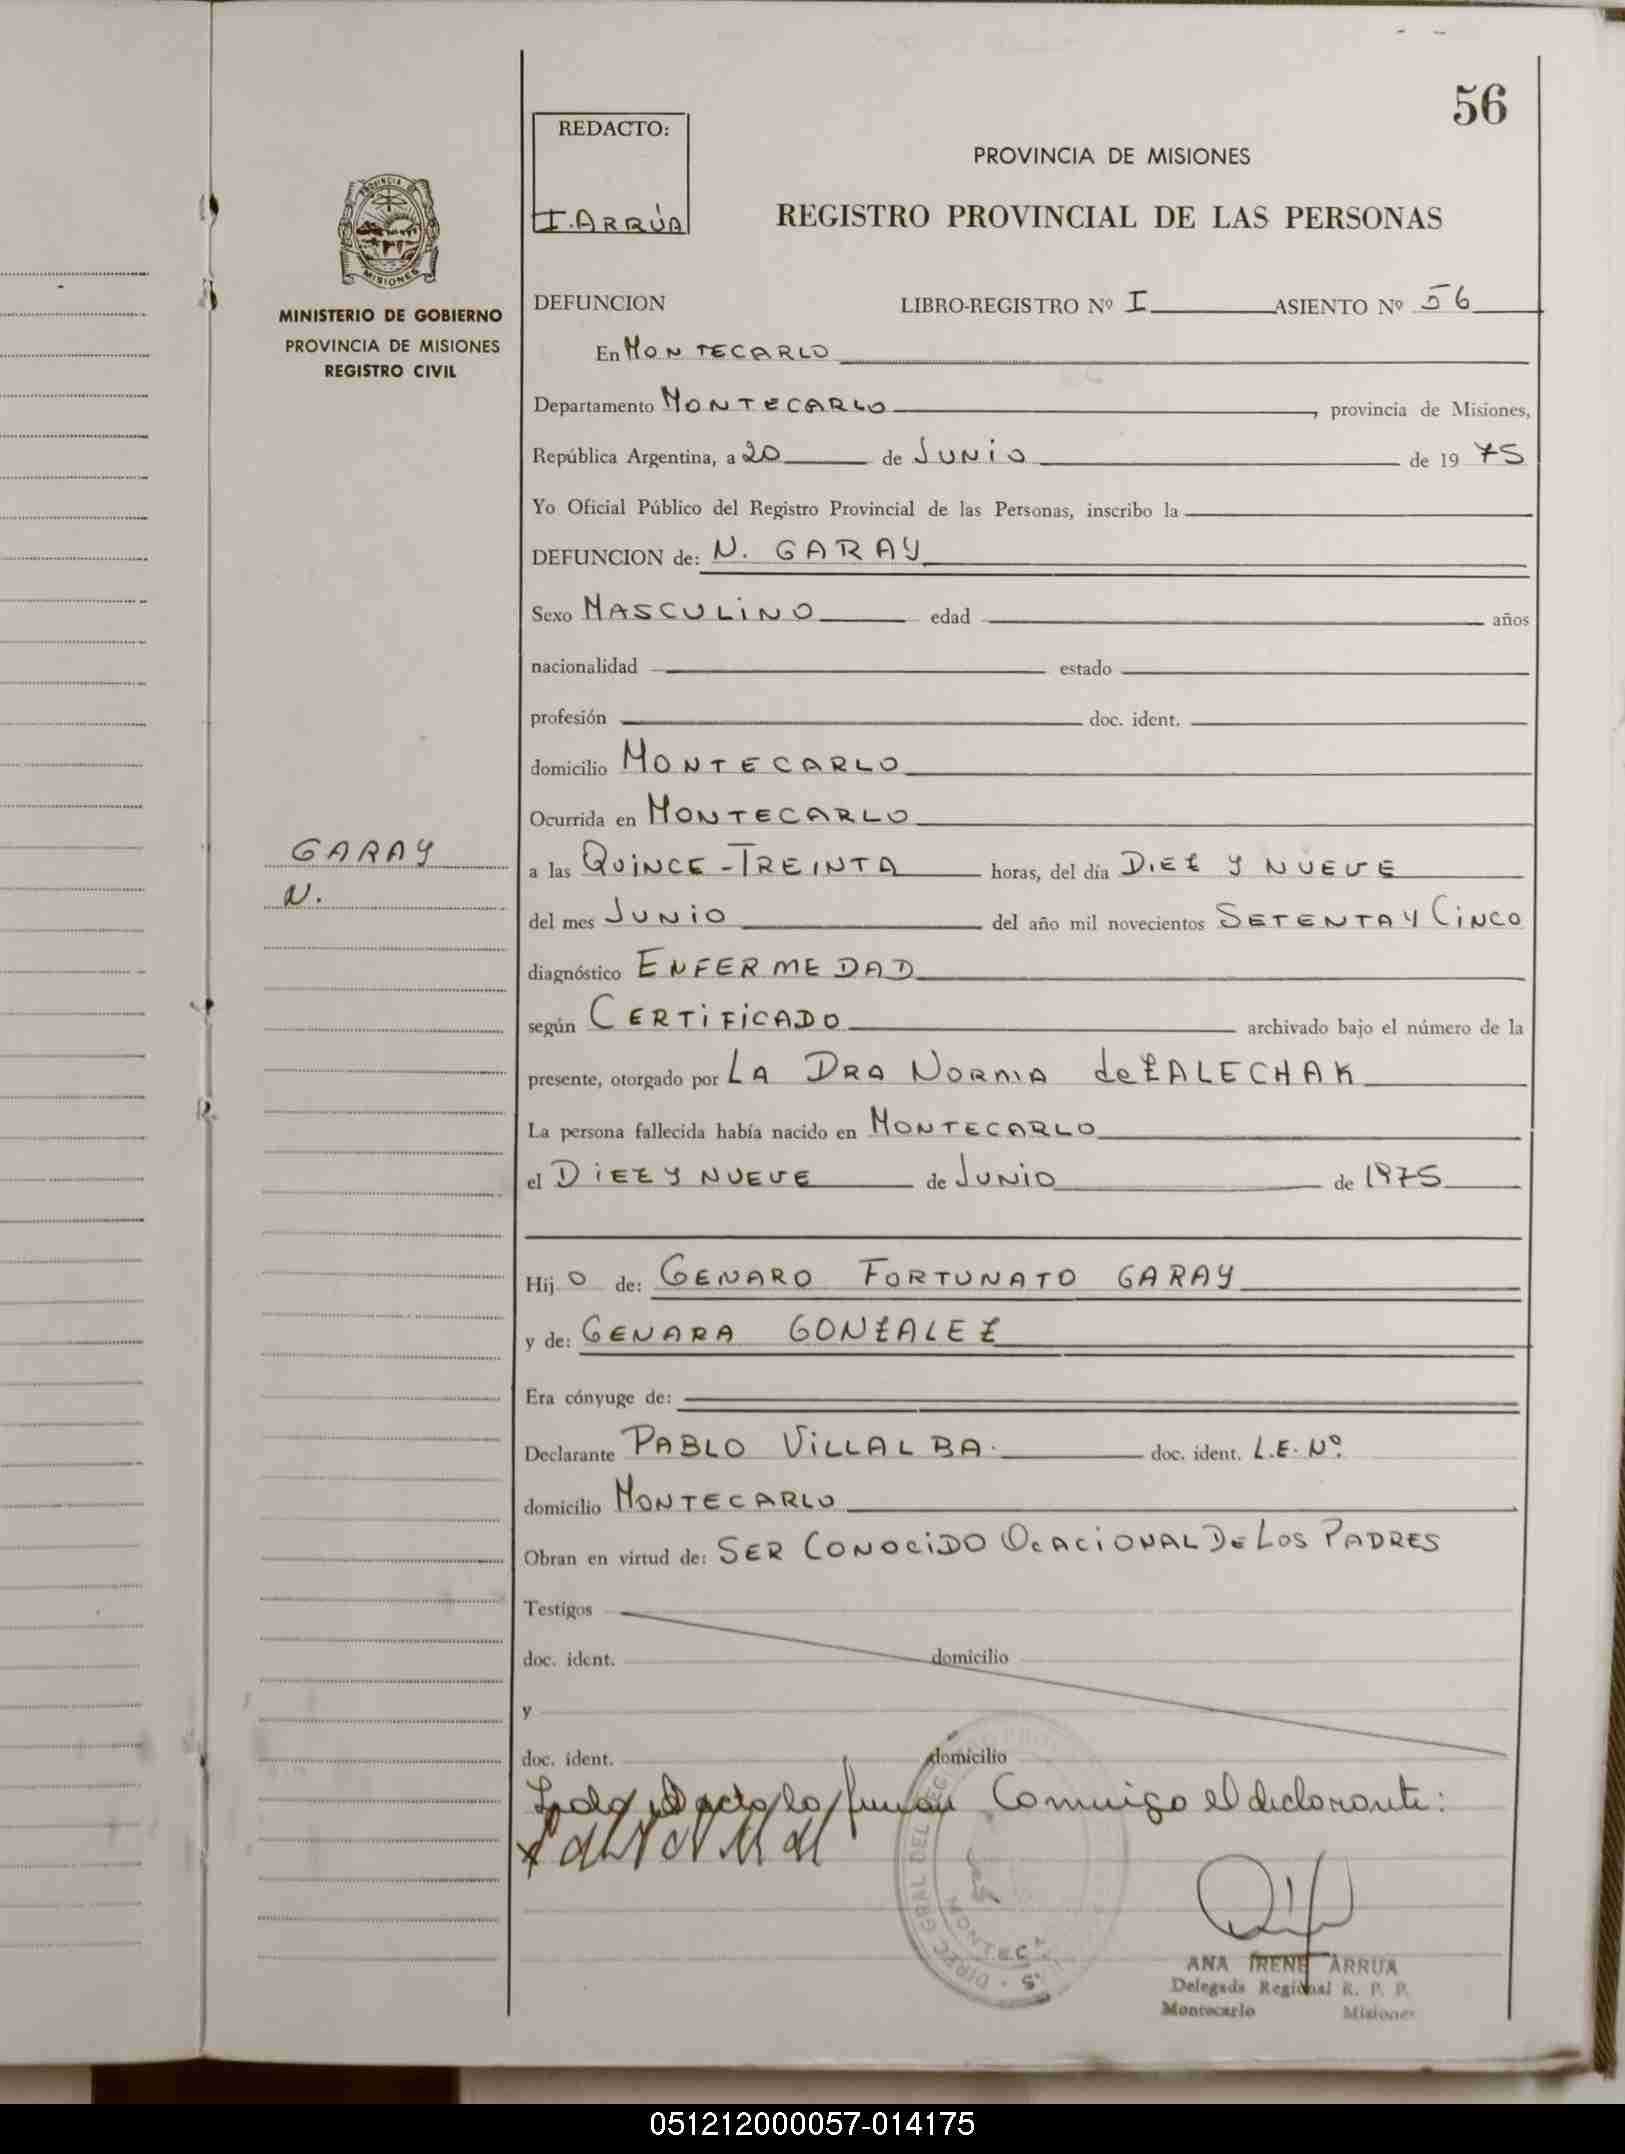 56
REDACTO:
I. ARRÚA
PROVINCIA DE MISIONES
REGISTRO PROVINCIAL DE LAS PERSONAS
PROVINCIA DE
MISIONES
MINISTERIO DE GOBIERNO
PROVINCIA DE MISIONES
REGISTRO CIVIL
DEFUNCION LIBRO-REGISTRO Nº I ASIENTO Nº 56
En MONTECARLO
Departamento MONTECARLO, provincia de Misiones,
República Argentina, a 20 de JUNIO de 19 75
Yo Oficial Público del Registro Provincial de las Personas, inscribo la
DEFUNCION de: N. GARAY
Sexo MASCULINO edad años
nacionalidad estado
profesión doc. ident.
domicilio MONTECARLO
Ocurrida en MONTECARLO
GARAY
N.
a las QUINCE-TREINTA horas, del día DIEZ Y NUEVE
del mes JUNIO del año mil novecientos SETENTA Y CINCO
diagnóstico ENFERMEDAD
según CERTIFICADO archivado bajo el número de la
presente, otorgado por LA DRA NORMA de ZALECHAK
La persona fallecida había nacido en MONTECARLO
el DIEZ Y NUEVE de JUNIO de 1975
Hij O de: GENARO FORTUNATO GARAY
y de: GENARA GONZALEZ
Era cónyuge de:
Declarante PABLO VILLALBA. doc. ident. L.E. Nº.
domicilio MONTECARLO
Obran en virtud de: SER CONOCIDO OCACIONAL DE LOS PADRES
Testigos
doc. ident. domicilio
y
doc. ident. domicilio
Leída el acta la firman Conmigo el declarante:
ANA IRENE ARRUA
Delegada Regional R. P. P.
Montecarlo Misiones
051212000057-014175